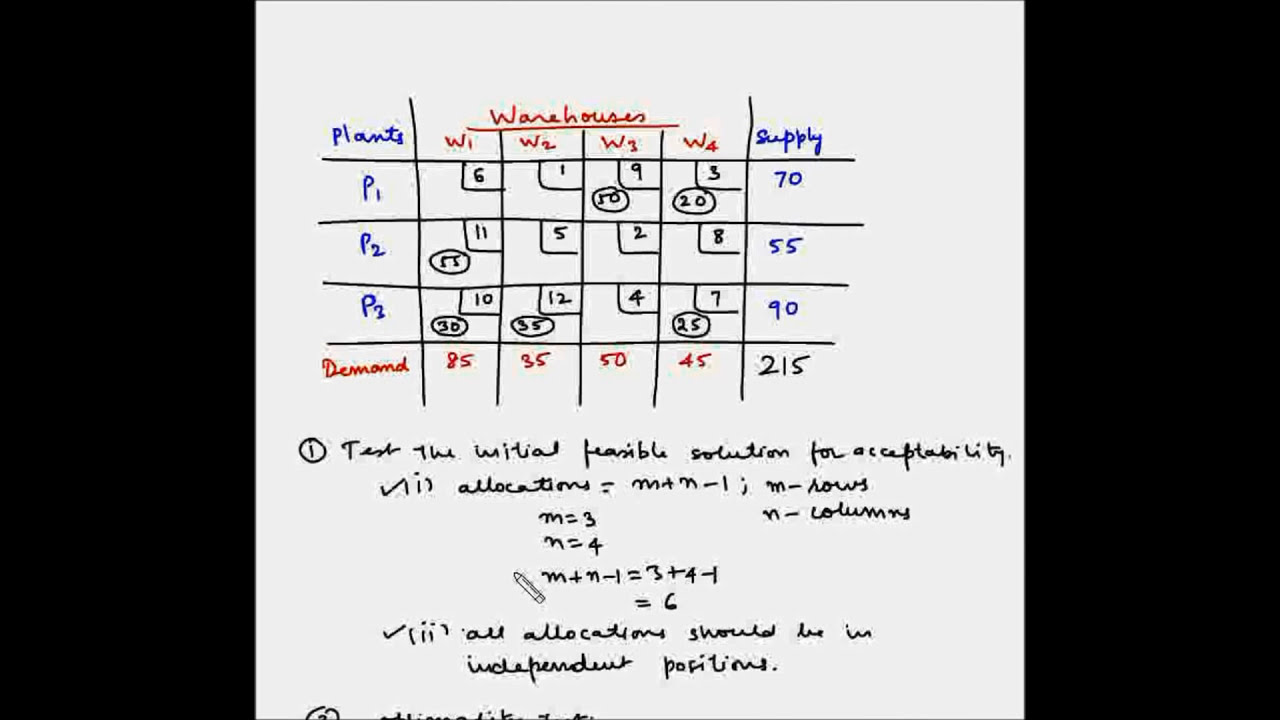 Warehouses
Plants W1 W2 W3 W4 Supply
P1 6 1 9 3 70
50 20
P2 11 5 2 8 55
55
P3 10 12 4 7 90
30 35 25
Demand 85 35 50 45 215
① Test the initial feasible solution for acceptability.
✓(i) allocations = m+n-1; m-rows
m=3 n-columns
n=4
m+n-1=3+4-1
= 6
✓(ii) all allocations should be in
independent positions.